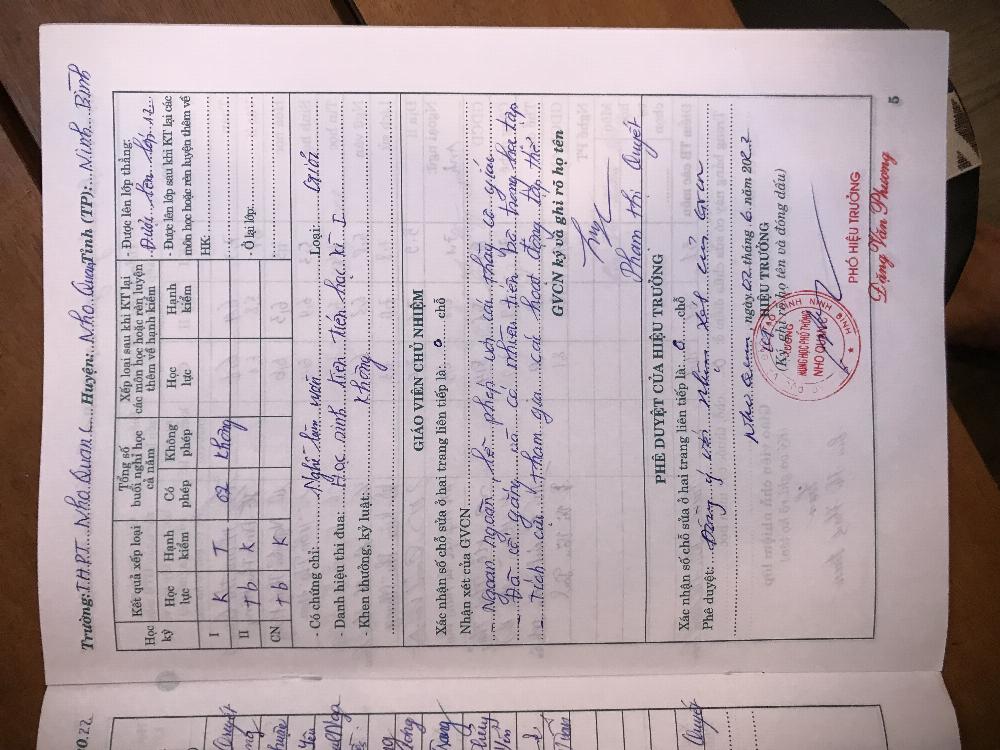 Trường: T.H.P.T. Nho Quan C Huyện: Nho Quan Tỉnh (TP): Ninh Bình
Học kỳ
Kết quả xếp loại
Học lực
Hạnh kiểm
Tổng số buổi nghỉ học cả năm
Có phép
Không phép
Xếp loại sau khi KT lại các môn học hoặc rèn luyện thêm về hạnh kiểm
Học lực
Hạnh kiểm
- Được lên lớp thẳng:
Được lên lớp 12
- Được lên lớp sau khi KT lại các môn học hoặc rèn luyện thêm về HK:
- Ở lại lớp:
I K T 02 Không
II tb K
CN tb K
- Có chứng chỉ: Nghề làm vườn Loại: Giỏi
- Danh hiệu thi đua: Học sinh tiên tiến học kì I
- Khen thưởng, kỷ luật: Không
GIÁO VIÊN CHỦ NHIỆM
Xác nhận số chỗ sửa ở hai trang liên tiếp là: 0 chỗ
Nhận xét của GVCN
Ngoan ngoãn, lễ phép với các thầy cô giáo
Đã cố gắng và có nhiều tiến bộ trong học tập
Tích cực tham gia các hoạt động tập thể
GVCN ký và ghi rõ họ tên
Phạm Thị Quyết
PHÊ DUYỆT CỦA HIỆU TRƯỞNG
Xác nhận số chỗ sửa ở hai trang liên tiếp là: 0 chỗ
Phê duyệt: Đồng ý với nhận xét của GVCN
Nho Quan, ngày 02 tháng 6 năm 2022
HIỆU TRƯỞNG
(Ký ghi rõ họ tên và đóng dấu)
TRƯỜNG
TRUNG HỌC PHỔ THÔNG
NHO QUAN C
TỈNH NINH BÌNH
PHÓ HIỆU TRƯỞNG
Đặng Văn Phương
5
Quyết
Quyết